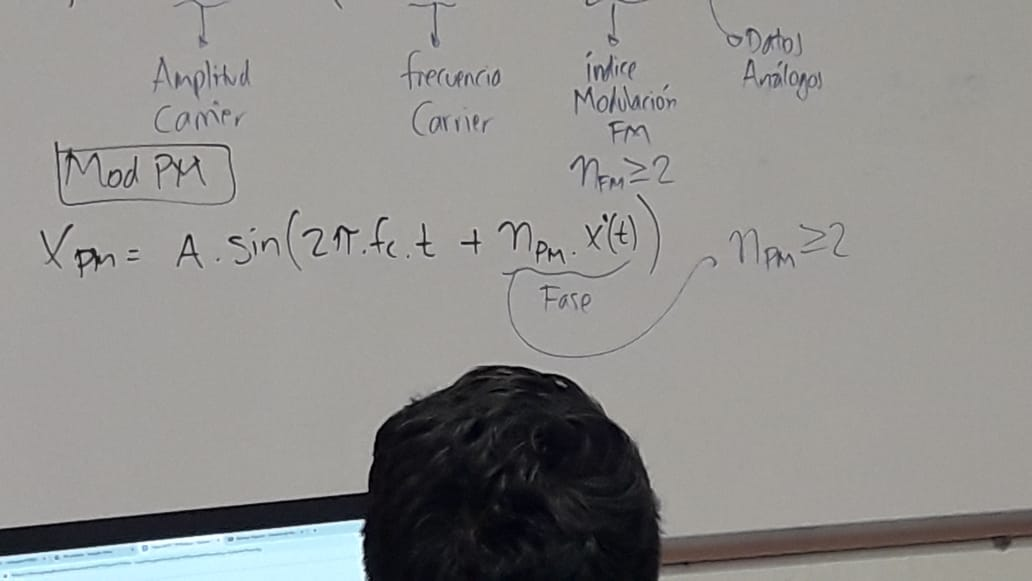 Amplitud
Carrier
frecuencia
Carrier
índice
Modulación
FM
nFM ≥ 2
Datos
Análogos
Mod PM
XPM = A . sin(2π.fc.t + nPM . x'(t))
nPM ≥ 2
Fase